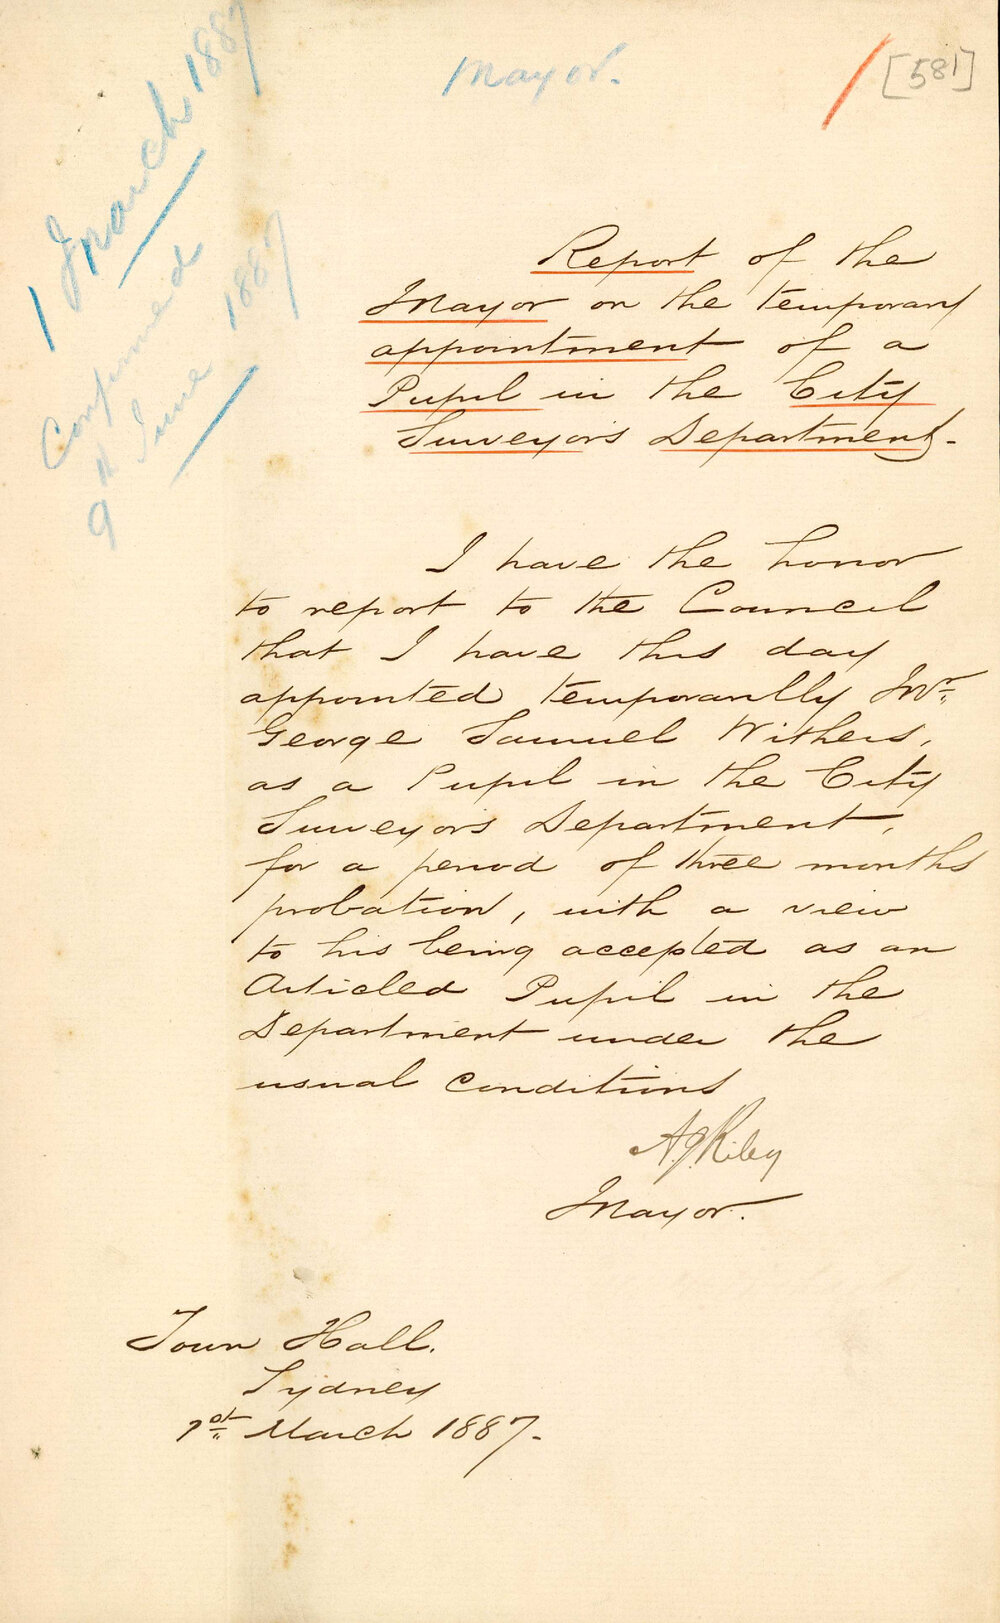 Mayor.
[581]
1 March 1887
Confirmed
9th June 1887
Report of the
Mayor on the temporary
appointment of a
Pupil in the City
Surveyor's Department.
I have the honor
to report to the Council
that I have this day
appointed temporarilly Mr.
George Samuel Withers,
as a Pupil in the City
Surveyor's Department,
for a period of three months
probation, with a view
to his being accepted as an
Articled Pupil in the
Department under the
usual conditions
A.J. Riley
Mayor.
Town Hall.
Sydney
1st March 1887.